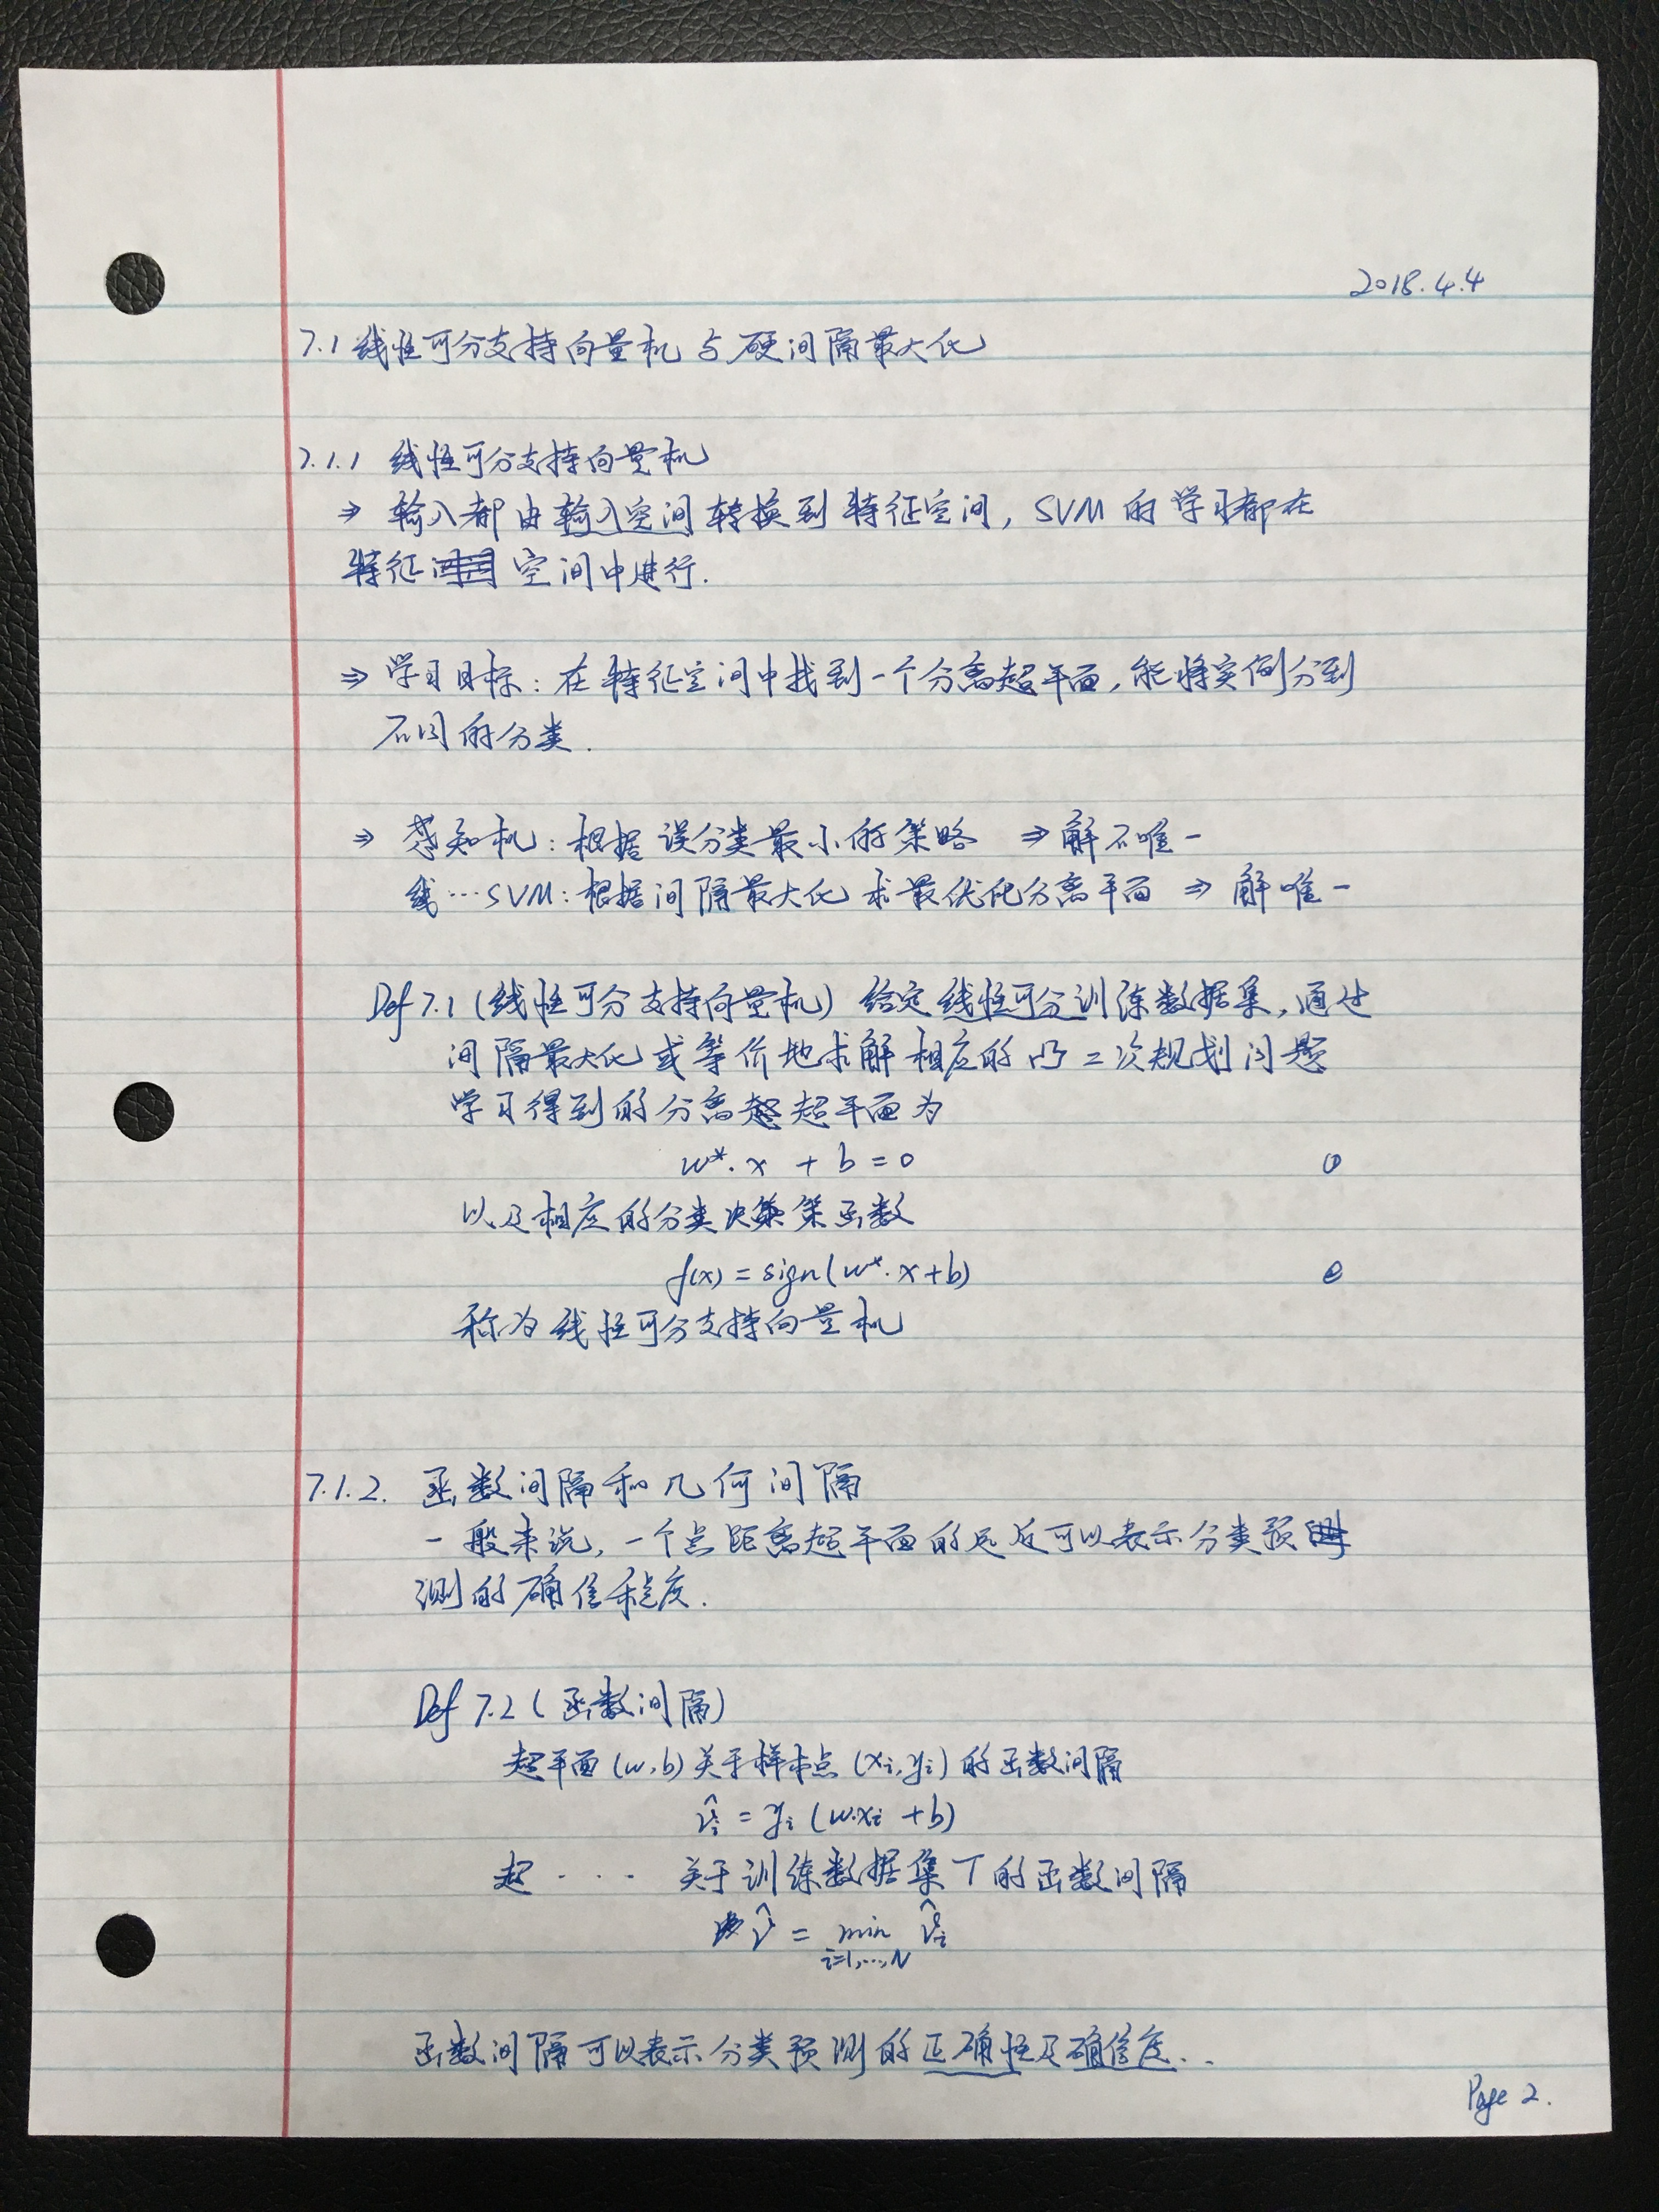 2018.4.4
7.1 线性可分支持向量机与硬间隔最大化
7.1.1 线性可分支持向量机
⇒ 输入都由输入空间转换到特征空间, SVM的学习都在
特征空间中进行.
⇒ 学习目标: 在特征空间中找到一个分离超平面, 能将实例分到
不同的分类.
⇒ 感知机: 根据误分类最小的策略 ⇒ 解不唯一
线…SVM: 根据间隔最大化求最优化分离平面 ⇒ 解唯一
Def 7.1 (线性可分支持向量机) 给定线性可分训练数据集, 通过
间隔最大化或等价地求解相应的凸二次规划问题
学习得到的分离超平面为
w*·x + b = 0 ①
以及相应的分类决策函数
f(x) = sign(w*·x+b) ②
称为线性可分支持向量机
7.1.2. 函数间隔和几何间隔
一般来说, 一个点距离超平面的远近可以表示分类预
测的确信程度.
Def 7.2 (函数间隔)
超平面 (w,b) 关于样本点 (xi, yi) 的函数间隔
γ̂i = yi (w·xi + b)
超 · · · · 关于训练数据集T的函数间隔
γ̂ = min γ̂i
i=1,…,N
函数间隔可以表示分类预测的正确性及确信度..
Page 2.